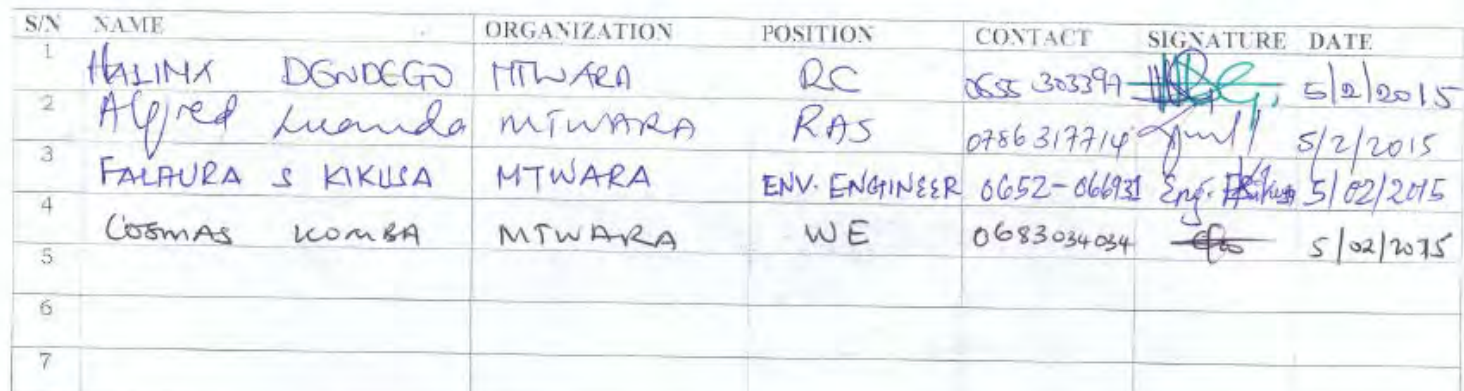 S/N NAME ORGANIZATION POSITION CONTACT SIGNATURE DATE
1 HALIMA DENDEGO MTWARA RC 0655 303399 5/2/2015
2 Alfred Luanda MTWARA RAS 0786 317714 5/2/2015
3 FALAURA S KIKUSA MTWARA ENV. ENGINEER 0652-066931 Eng. 5/02/2015
4 COSMAS KOMBA MTWARA WE 0683034034 5/02/2015
5
6
7